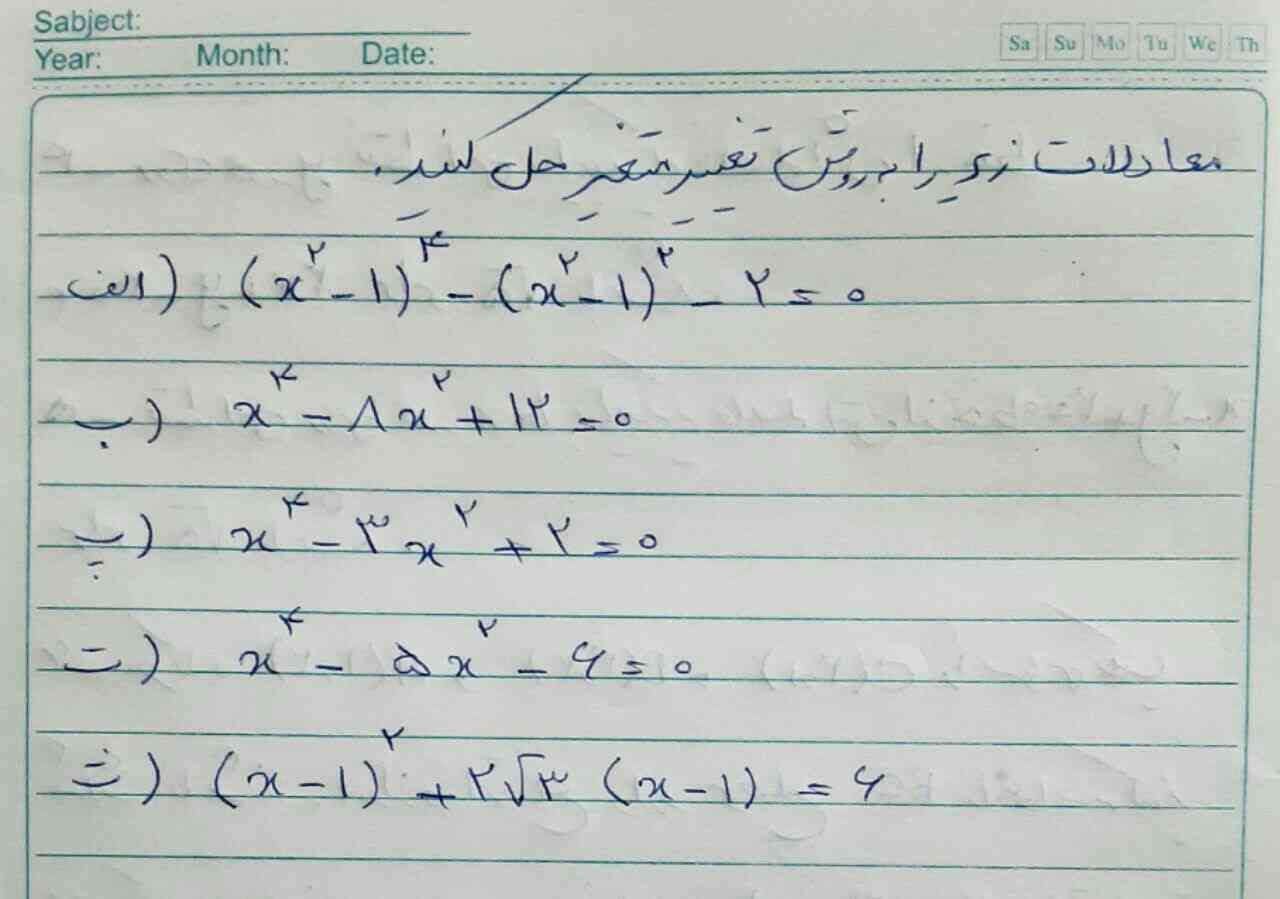 Sabject:
Year: Month: Date: Sa Su Mo Tu We Th
معادلات زیر را به روش تغییر متغیر حل کنید.
الف) (x^۲ - ۱)^۴ - (x^۲ - ۱)^۲ - ۲ = ۰
ب) x^۴ - ۸x^۲ + ۱۲ = ۰
پ) x^۴ - ۳x^۲ + ۲ = ۰
ت) x^۴ - ۵x^۲ - ۶ = ۰
ث) (x - ۱)^۲ + ۲√۳ (x - ۱) = ۶